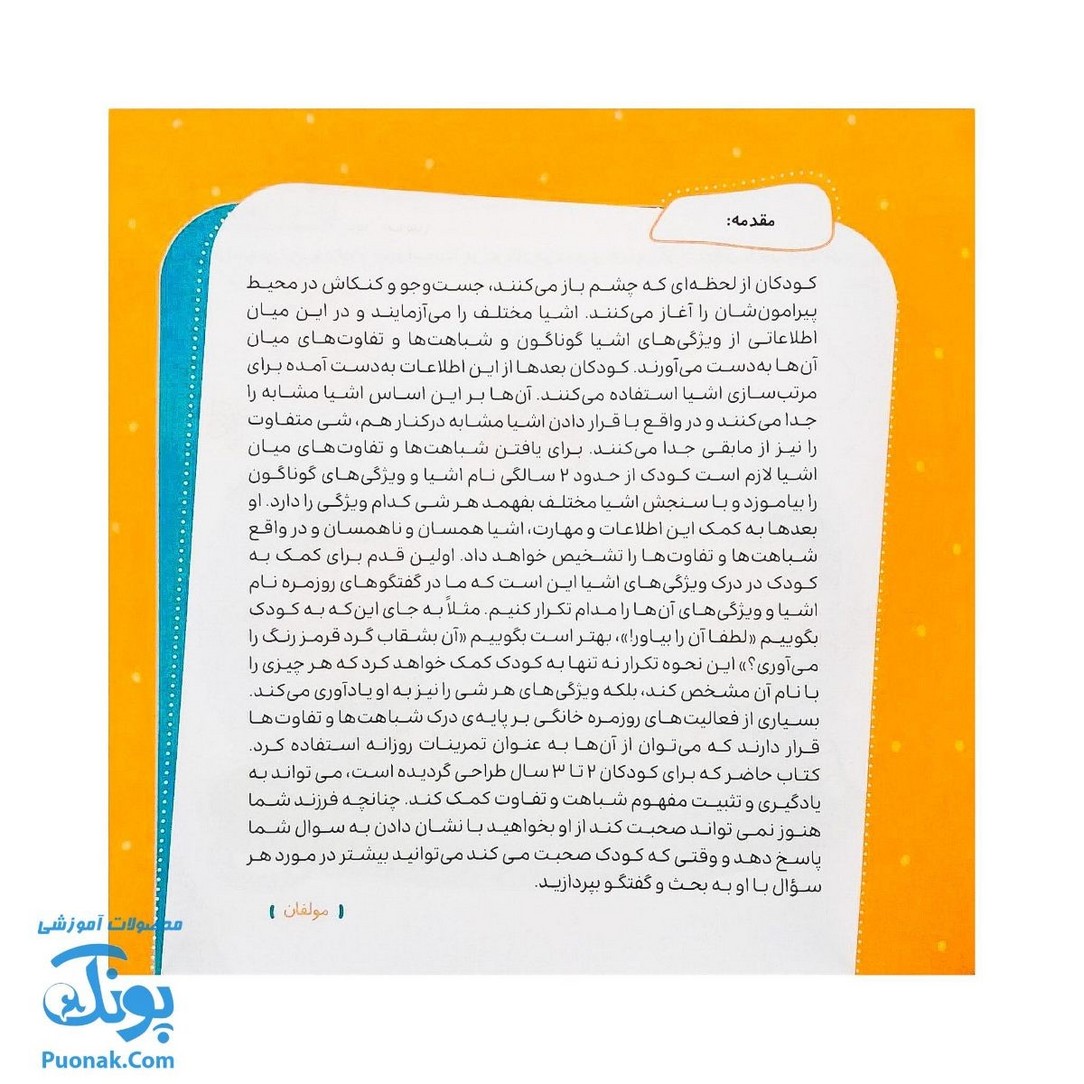 مقدمه:
کودکان از لحظه‌ای که چشم باز می‌کنند، جست‌وجو و کنکاش در محیط
پیرامون‌شان را آغاز می‌کنند. اشیا مختلف را می‌آزمایند و در این میان
اطلاعاتی از ویژگی‌های اشیا گوناگون و شباهت‌ها و تفاوت‌های میان
آن‌ها به‌دست می‌آورند. کودکان بعدها از این اطلاعات به‌دست آمده برای
مرتب‌سازی اشیا استفاده می‌کنند. آن‌ها بر این اساس اشیا مشابه را
جدا می‌کنند و در واقع با قرار دادن اشیا مشابه درکنار هم، شی متفاوت
را نیز از مابقی جدا می‌کنند. برای یافتن شباهت‌ها و تفاوت‌های میان
اشیا لازم است کودک از حدود ۲ سالگی نام اشیا و ویژگی‌های گوناگون
را بیاموزد و با سنجش اشیا مختلف بفهمد هر شی کدام ویژگی را دارد. او
بعدها به کمک این اطلاعات و مهارت، اشیا همسان و ناهمسان و در واقع
شباهت‌ها و تفاوت‌ها را تشخیص خواهد داد. اولین قدم برای کمک به
کودک در درک ویژگی‌های اشیا این است که ما در گفتگوهای روزمره نام
اشیا و ویژگی‌های آن‌ها را مدام تکرار کنیم. مثلاً به جای این‌که به کودک
بگوییم «لطفا آن را بیاور!»، بهتر است بگوییم «آن بشقاب گرد قرمز رنگ را
می‌آوری؟» این نحوه تکرار نه تنها به کودک کمک خواهد کرد که هر چیزی را
با نام آن مشخص کند، بلکه ویژگی‌های هر شی را نیز به او یادآوری می‌کند.
بسیاری از فعالیت‌های روزمره خانگی بر پایه‌ی درک شباهت‌ها و تفاوت‌ها
قرار دارند که می‌توان از آن‌ها به عنوان تمرینات روزانه استفاده کرد.
کتاب حاضر که برای کودکان ۲ تا ۳ سال طراحی گردیده است، می تواند به
یادگیری و تثبیت مفهوم شباهت و تفاوت کمک کند. چنانچه فرزند شما
هنوز نمی تواند صحبت کند از او بخواهید با نشان دادن به سوال شما
پاسخ دهد و وقتی که کودک صحبت می کند می‌توانید بیشتر در مورد هر
سؤال با او به بحث و گفتگو بپردازید.
مولفان
محصولات آموزشی
پونک
Puonak.Com